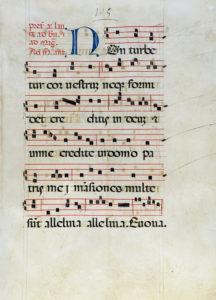 145
ad mag.
Non turbe
tur cor vestrum neq formi
det cre ditis in deum et
in me credite in domo pa
tris mei mansiones multe
sunt alleluia alleluia. Euoua.